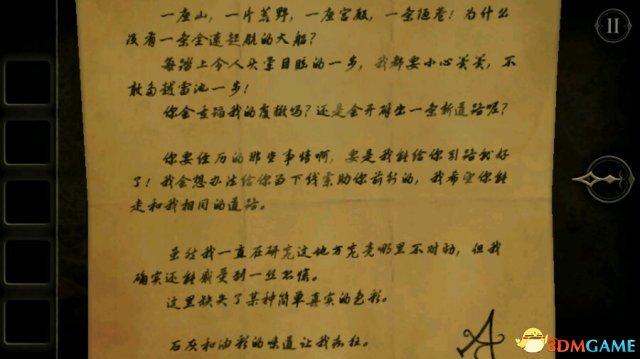 一座山，一片荒野，一座宫殿，一条陋巷！为什么
没有一条全速起航的大船？
每踏上令人头晕目眩的一步，我都要小心翼翼，不
敢再越雷池一步！
你会重蹈我的覆辙吗？还是会开辟出一条新道路呢？
你要经历的那些事情啊，要是我能给你引路就好
了！我会想办法给你留下线索助你前行的，我希望你能
走和我相同的道路。
虽然我一直在研究这地方究竟哪里不对劲，但我
确实还能感受到一丝
这里缺失了某种简单真实的色彩。
石灰和油彩的味道让我
3DMGAME